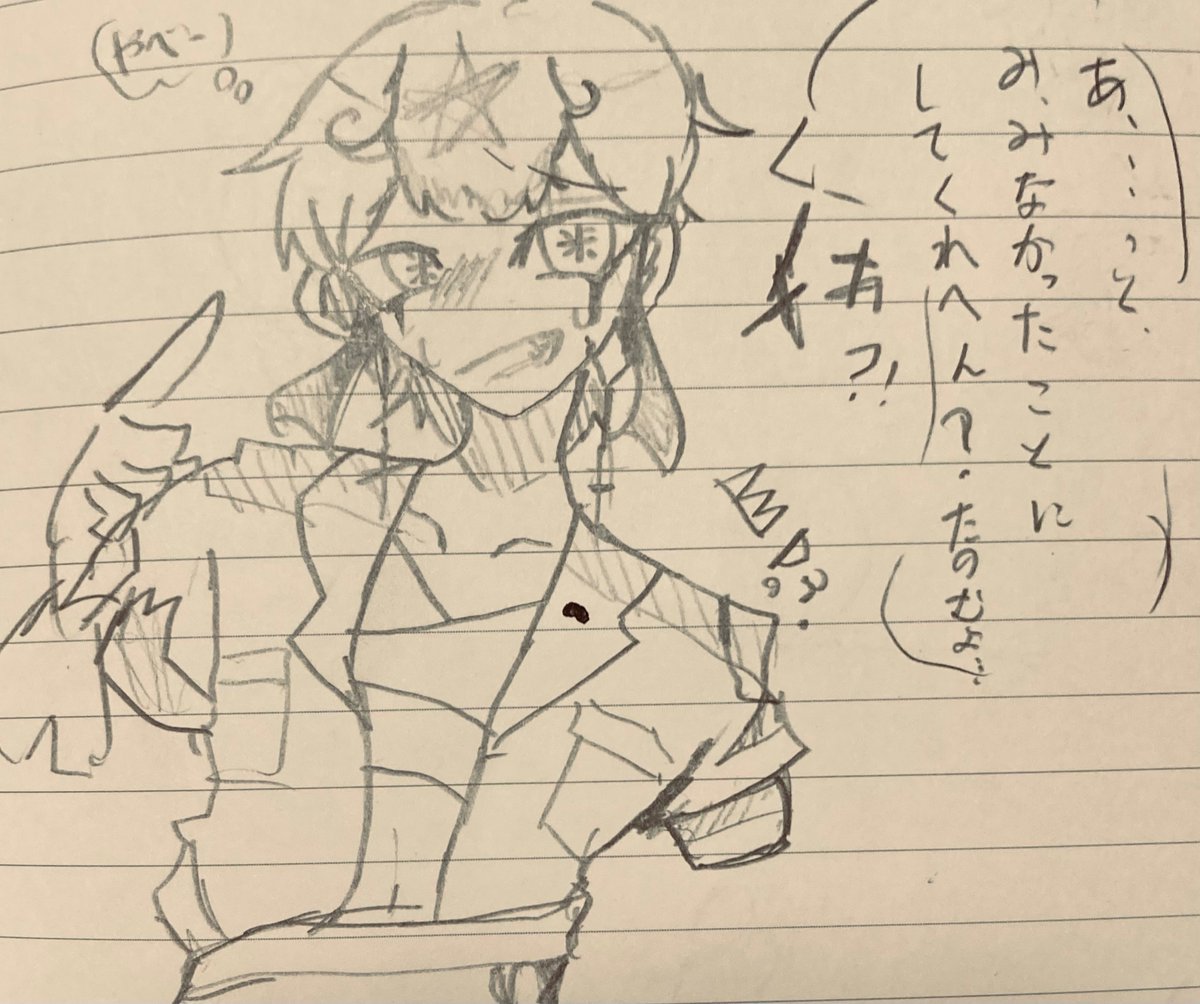 あ、…っと、
み、みなかったことに
してくれへん？・たのむよ…
あ？！
(やべー)